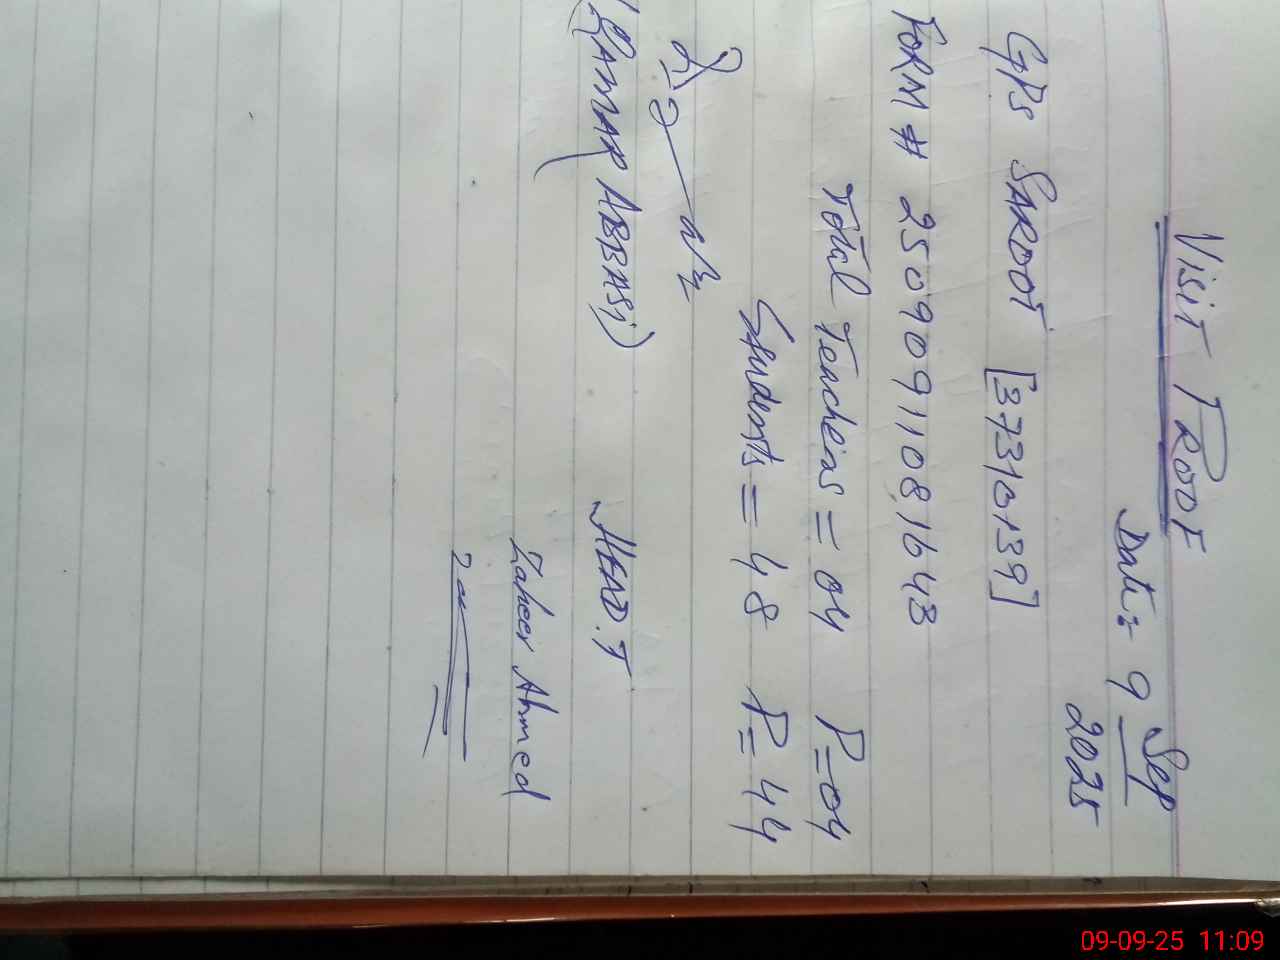 Visit Proof
Date:- 9 Sep
2025
GPS SAROOT [37310139]
FORM # 25090911081643
Total Teachers = 04 P=04
Students = 48 P=44
(QAMAR ABBASi) HEAD.T
Zaheer Ahmed
09-09-25 11:09